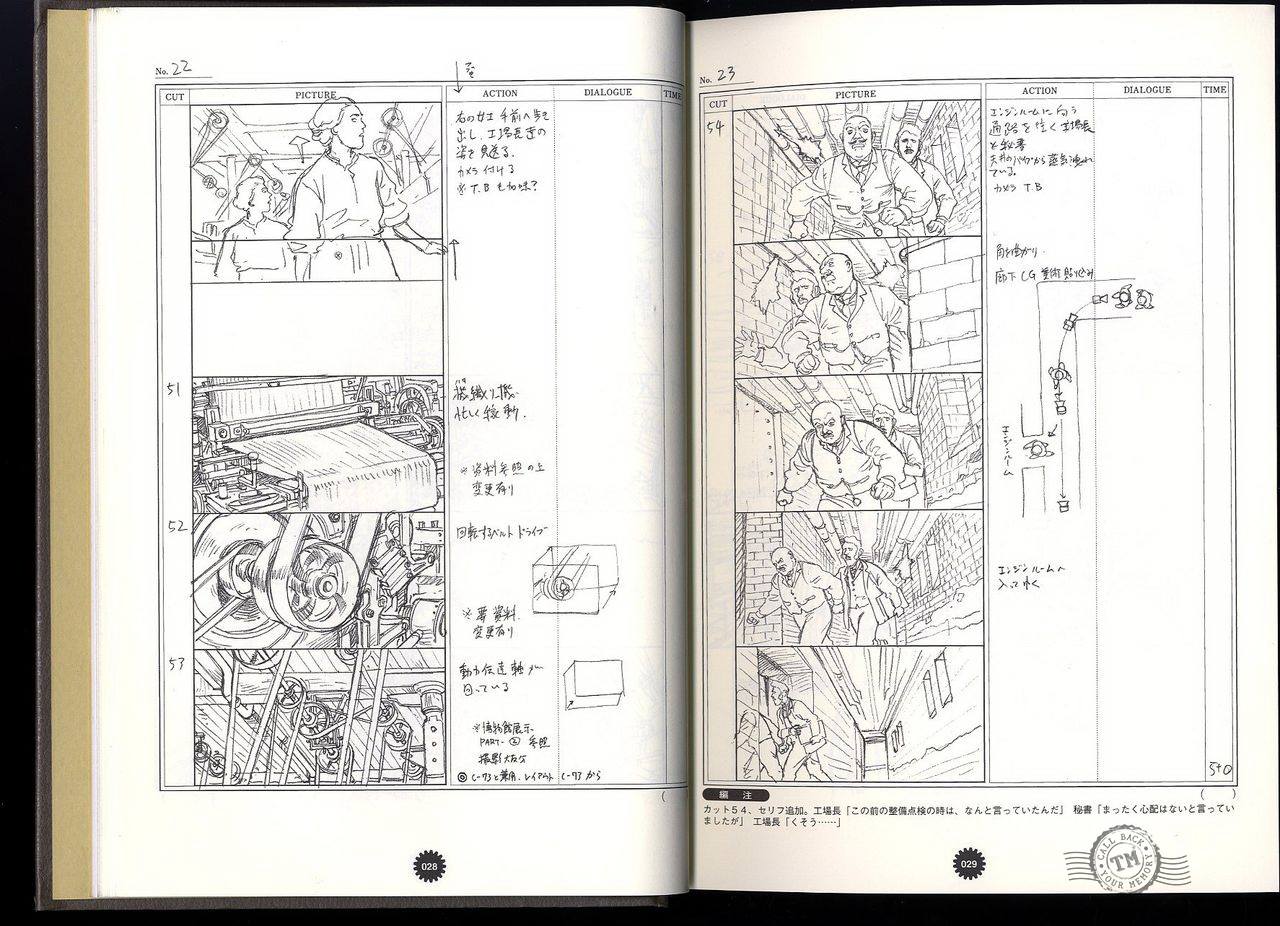 No. 22
CUT PICTURE ACTION DIALOGUE TIME
右の女工 手前へ歩き
出し、工場長達の
姿を見送る。
カメラ付ける
※ T.B も加味?
51
機織り機
忙しく稼動.
※資料参照の上
変更有り
52
回転するベルト ドライブ
※要資料.
変更有り
53
動力伝達軸が
回っている
※博物館展示
PART-② 参照
◎ C-73と兼用. レイアウト C-73 から
028
No. 23
CUT PICTURE ACTION DIALOGUE TIME
54
エンジンルームに向う
通路を往く工場長
と秘書
天井のパイプから蒸気漏れ
ている。
カメラ T.B
角を曲がり.
廊下 CG 美術貼り込み
エンジンルーム
エンジンルームへ
入ってゆく
5+0
( )
編 注
カット54、セリフ追加。工場長「この前の整備点検の時は、なんと言っていたんだ」 秘書「まったく心配はないと言ってい
ましたが」 工場長「くそう……」
029
CALL BACK
TM
YOUR MEMORY